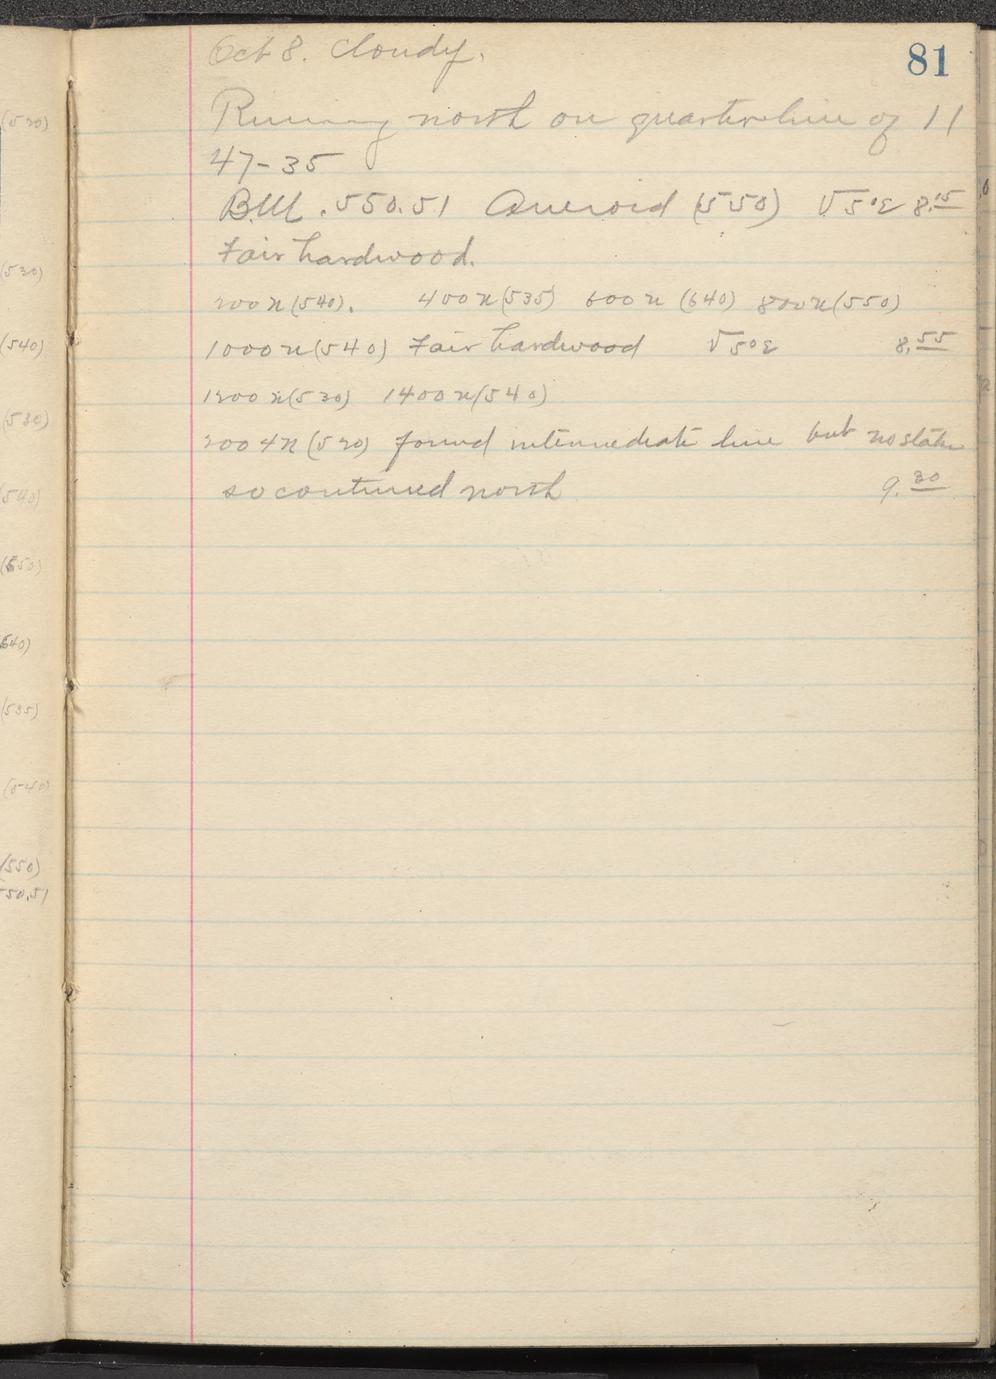 (530)
(530)
(540)
(530)
(540)
(550)
540)
(535)
(540)
(550)
550.51
81
Oct 8. Cloudy.
Running north on quarterline of 11
47-35
B.M. .550.51 Aneroid (550) V 5°E 8.15
Fair hardwood.
200 n (540). 400 n (535) 600 n (640) 800 n (550)
1000 n (540) Fair hardwood V 5°E 8.55
1200 n (530) 1400 n (540)
2004 n (520) found intermediate line but no stake
so continued north 9.30